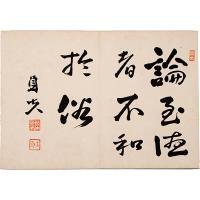 論至德
者不和
於俗